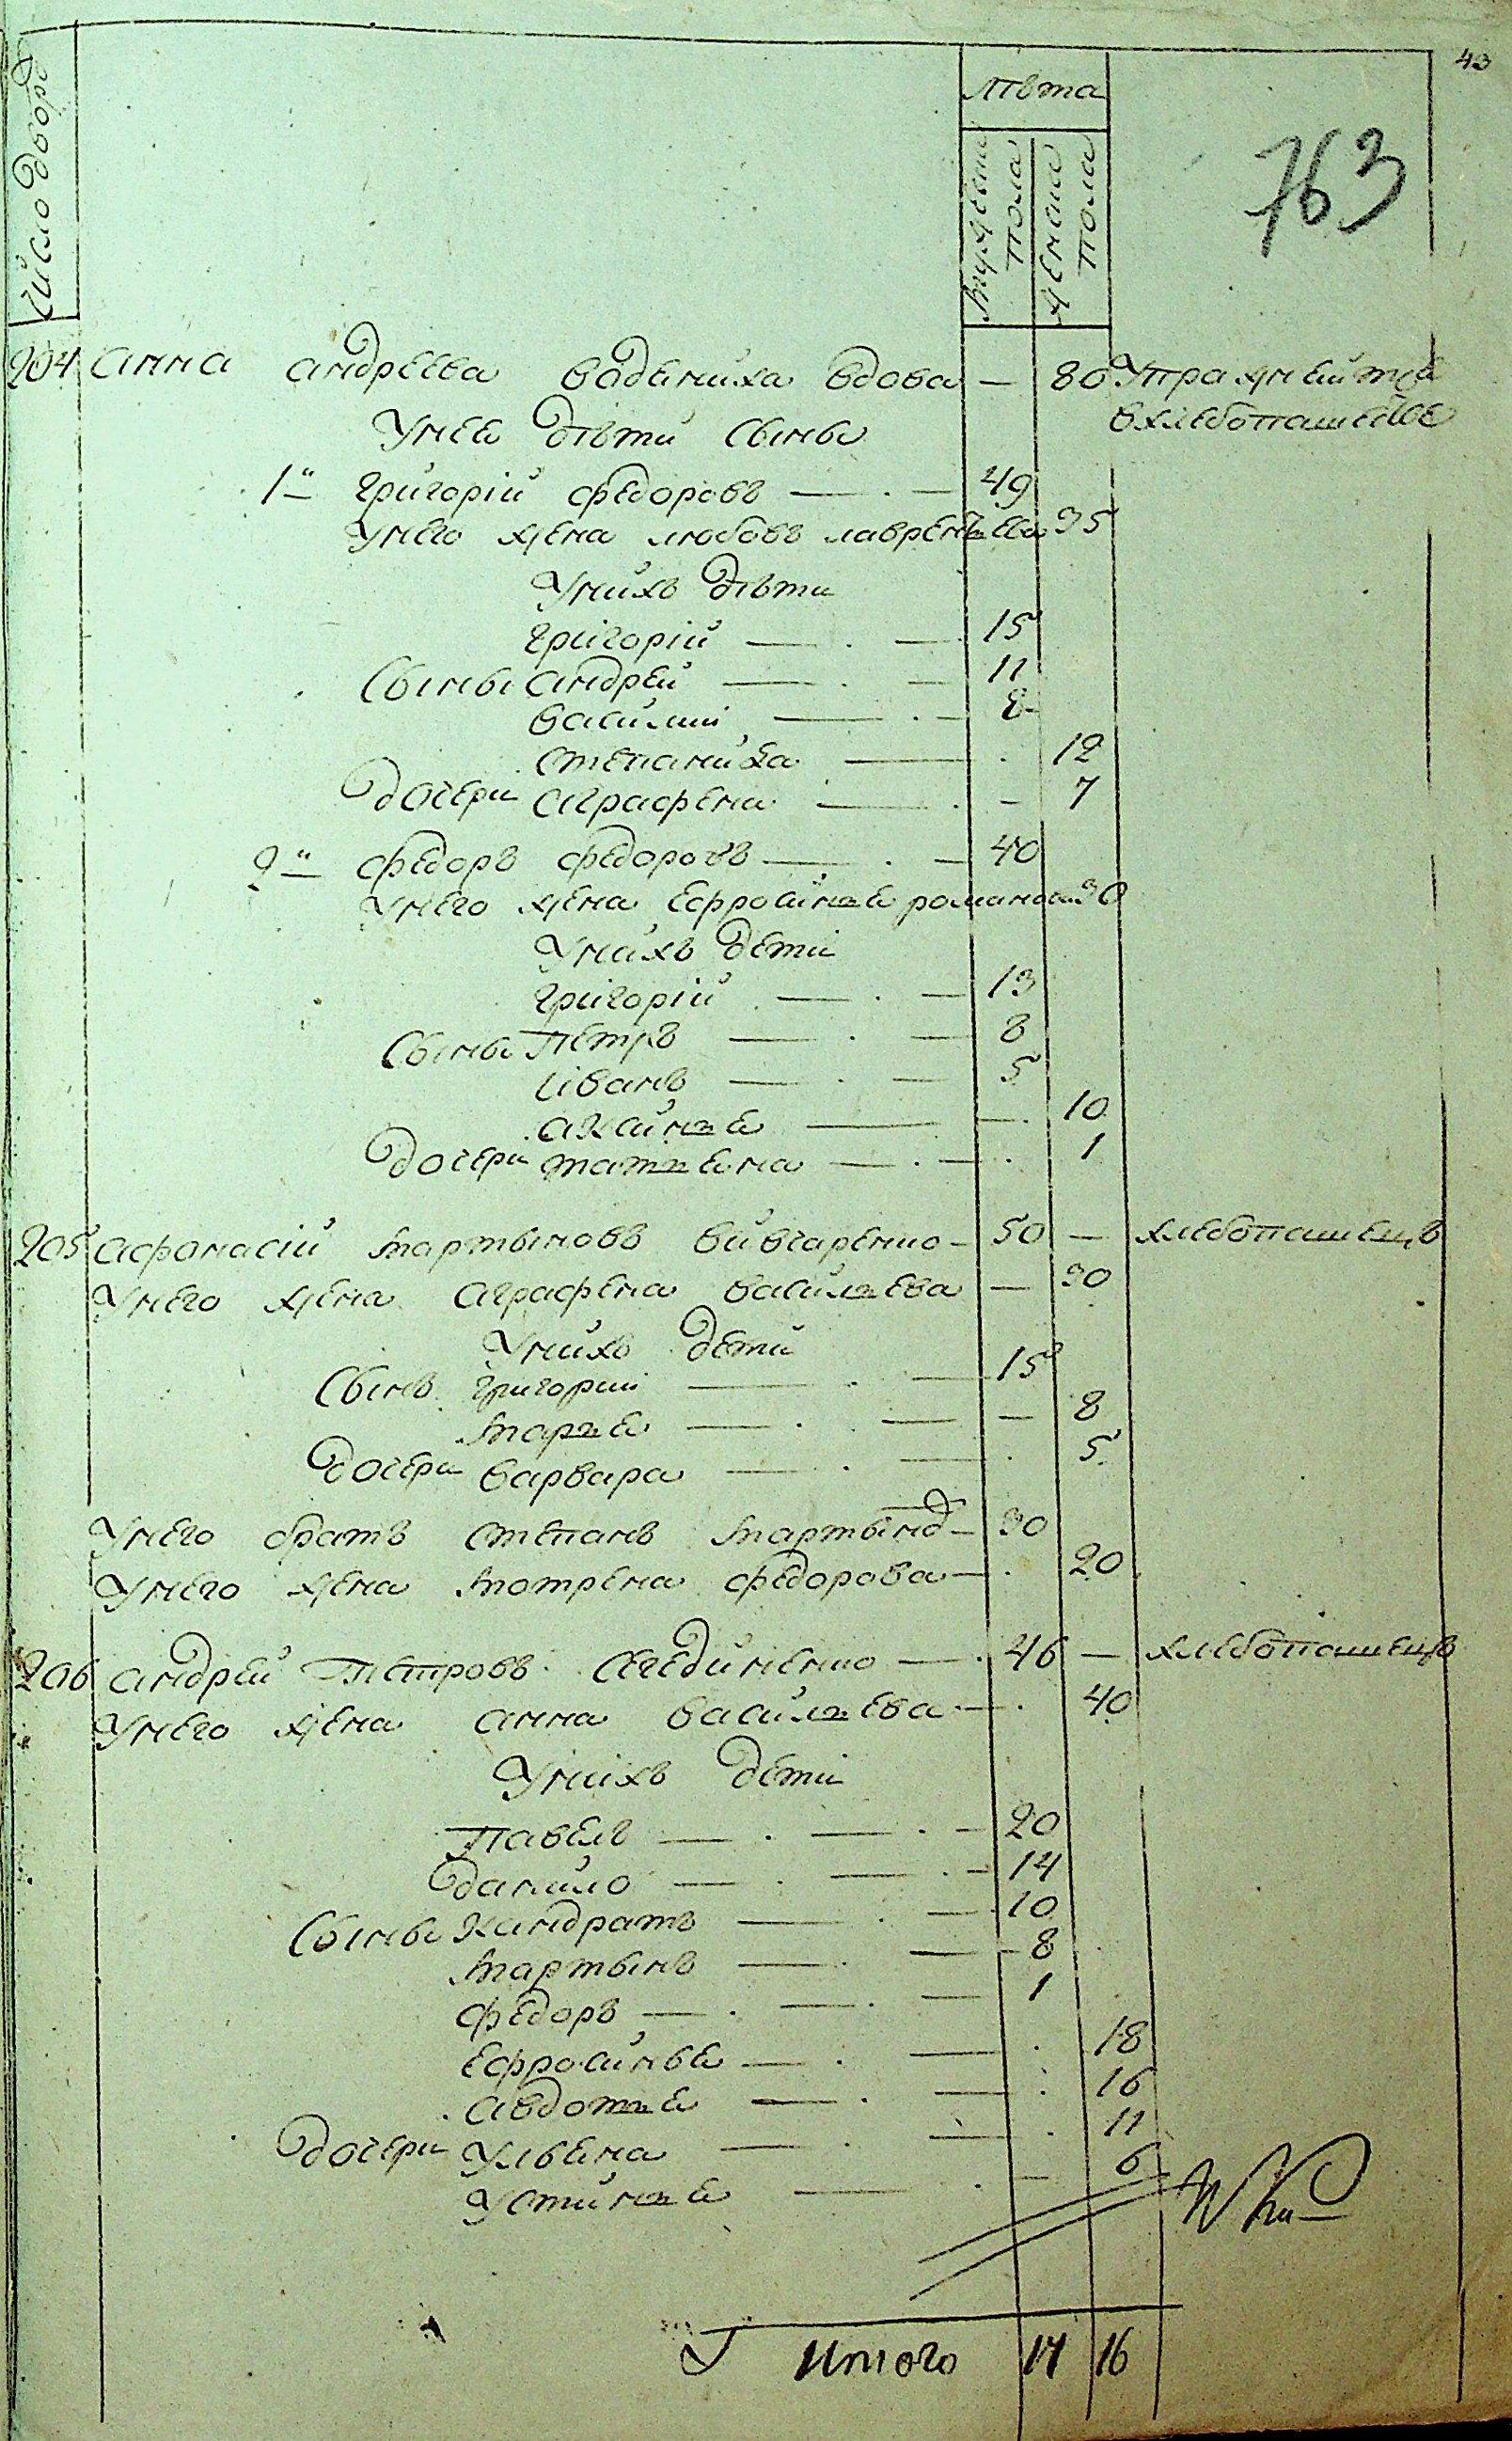 43
Число дворовъ
Лѣта
мужеска пола
женска пола
763
204 Анна Андреева вдова — 80 Упражнеится
в хлебопашестве
У нее дѣти Сыны
1й Григорій Федоровъ — 49
У него жена Любовъ Лаврентьева 35
У нихъ дѣти
Григорій — 15
Сыны Андрей — 11
Василий — 8
Степанида — 12
Дочери Аграфена — 7
2й Федоръ Федоровъ — 40
У него жена Ефросинья Романова 30
У нихъ дети
Григорій — 13
Сыны Петръ — 8
Иванъ — 5
Аксинья — 10
Дочери Татьяна — 1
205 Афонасій Мартыновъ — 50 — хлебопашецъ
У него жена Аграфена Васильева — 30
У нихъ дети
Сынъ Григорий — 15
Марья — 8
Дочери Варвара — 5
У него братъ Степанъ Мартынов — 30
У него жена Мотрена Федорова — 20
206 Андрей Петровъ — 46 — хлебопашецъ
У него жена Анна Васильева — 40
У нихъ дети
Павелъ — 20
Данило — 14
Сыны Кандратъ — 10
Мартынъ — 8
Федоръ — 1
Ефросинья — 18
Авдотья — 16
Дочери Ульяна — 11
Устинья — 6
Итого 17 16